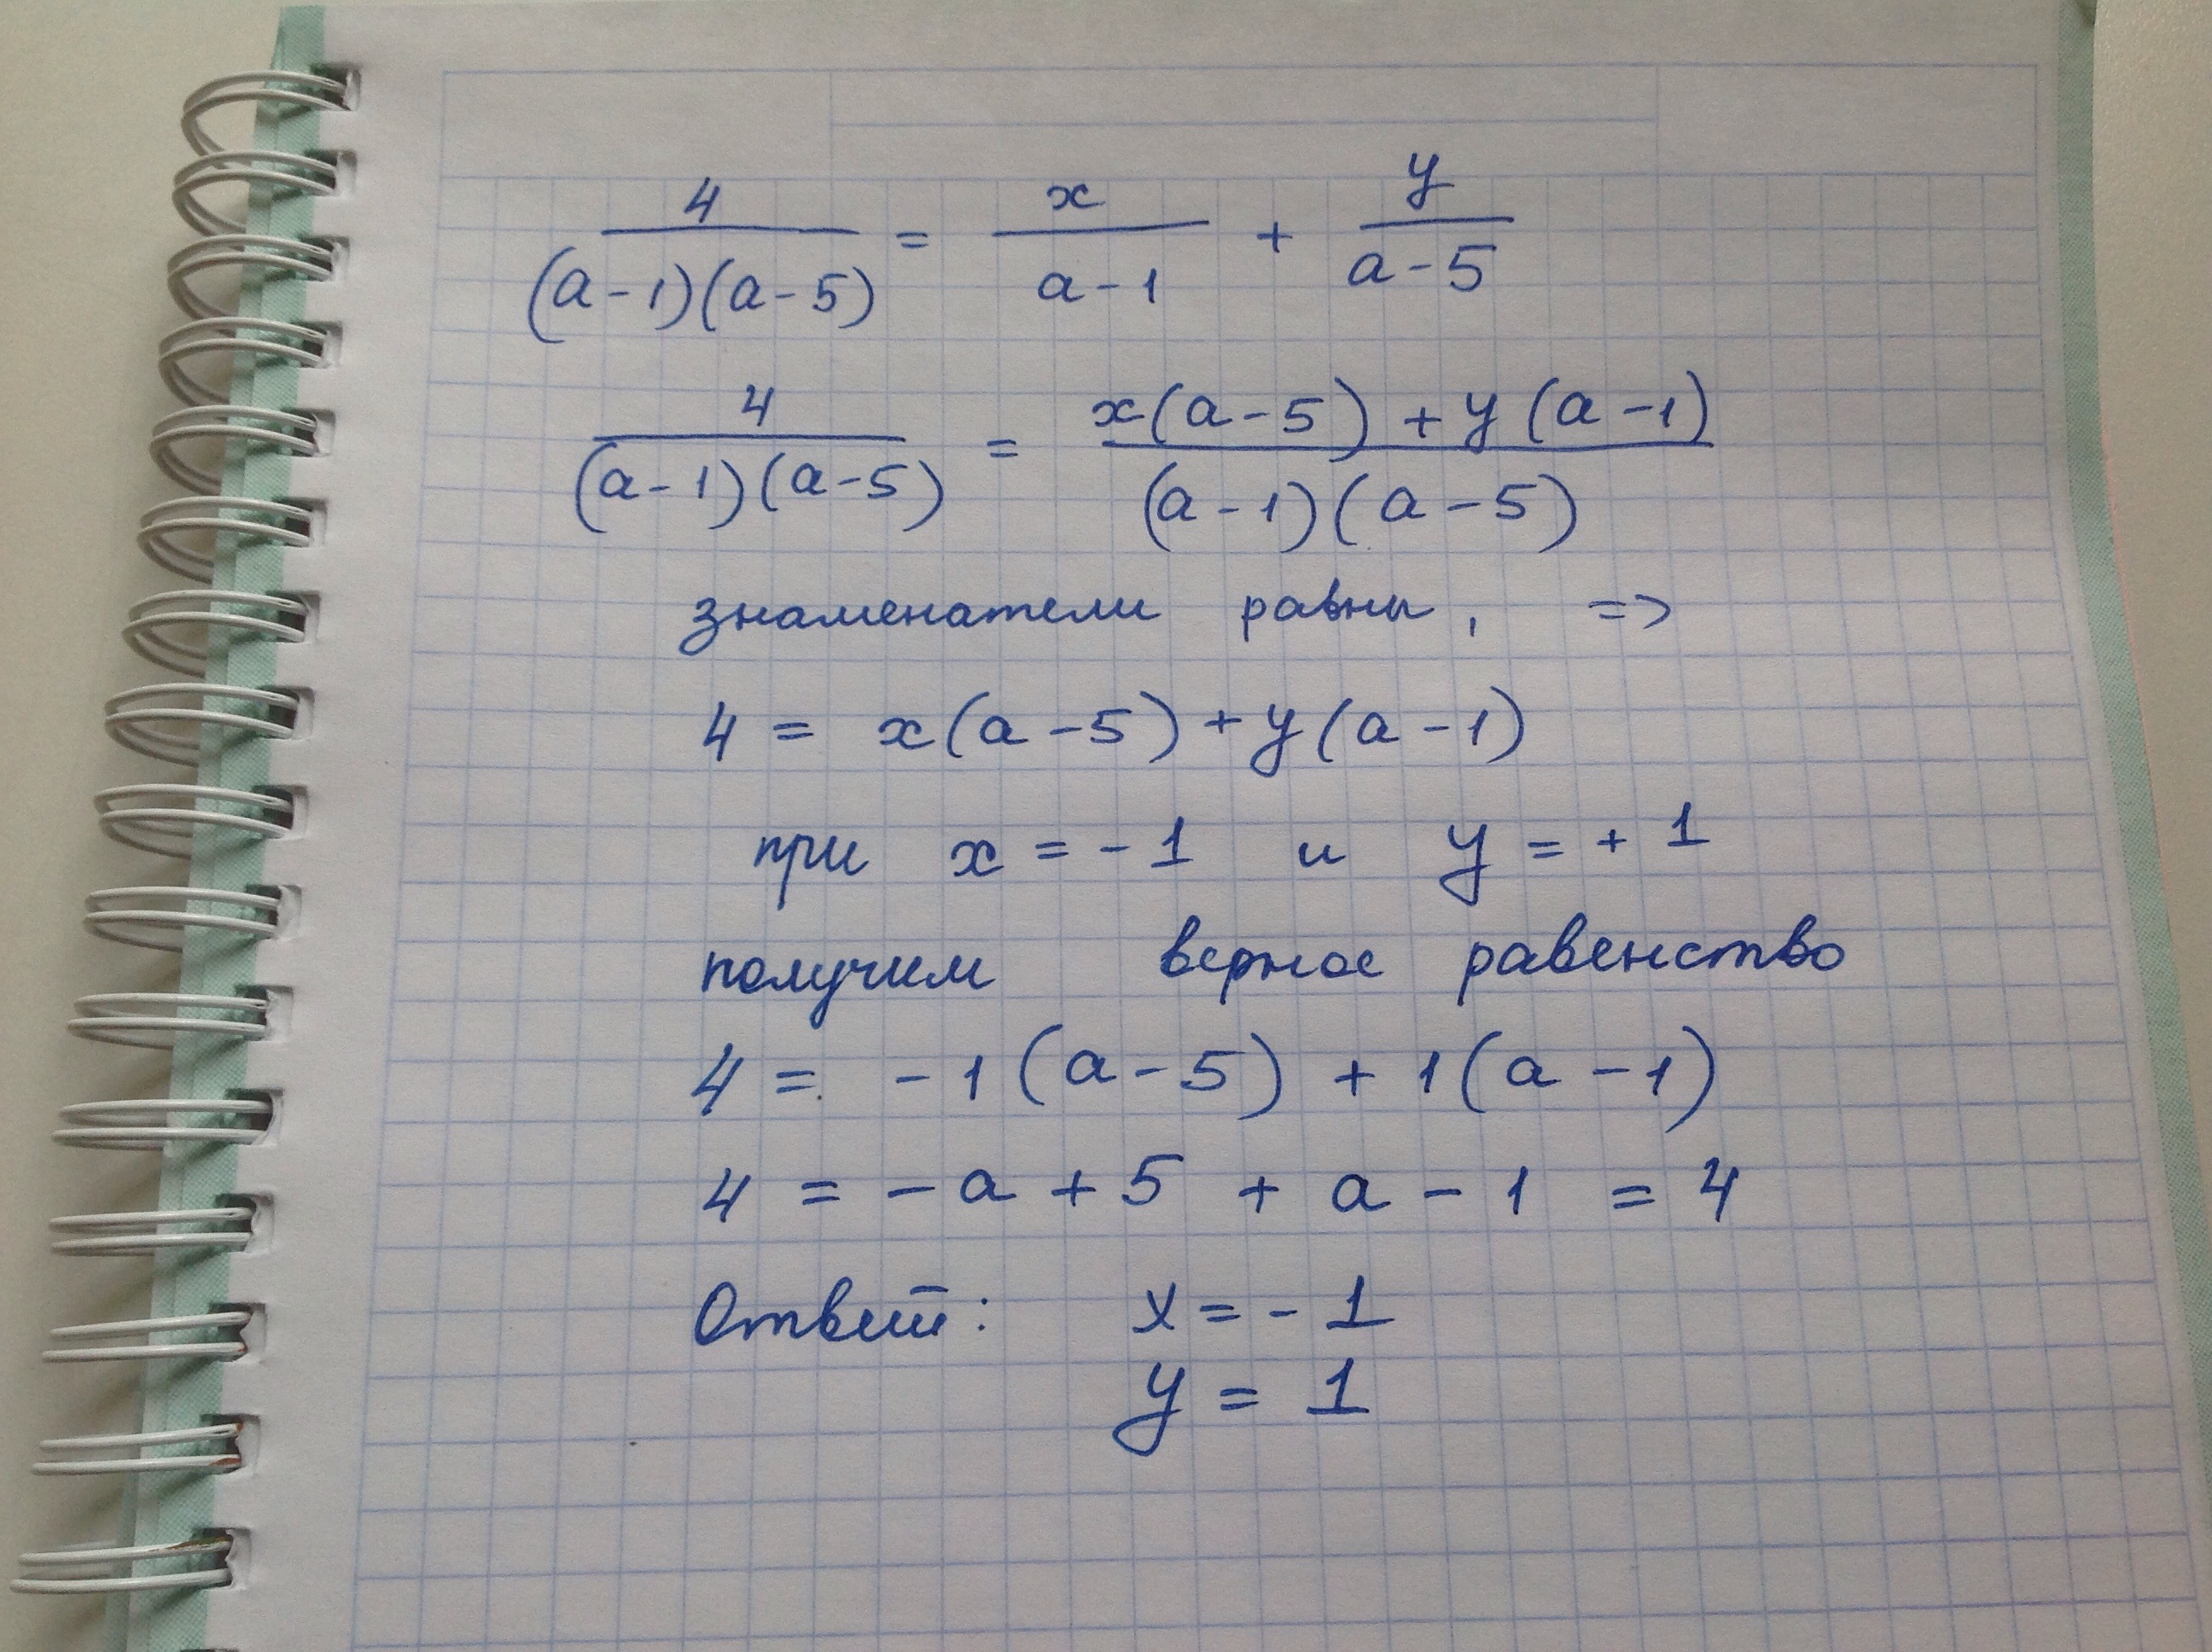 4/((a-1)(a-5)) = x/(a-1) + y/(a-5)
4/((a-1)(a-5)) = (x(a-5) + y(a-1))/((a-1)(a-5))
знаменатели равны, =>
4 = x(a-5) + y(a-1)
при x = -1 и y = +1
получим верное равенство
4 = -1(a-5) + 1(a-1)
4 = -a + 5 + a - 1 = 4
Ответ: x = -1
y = 1